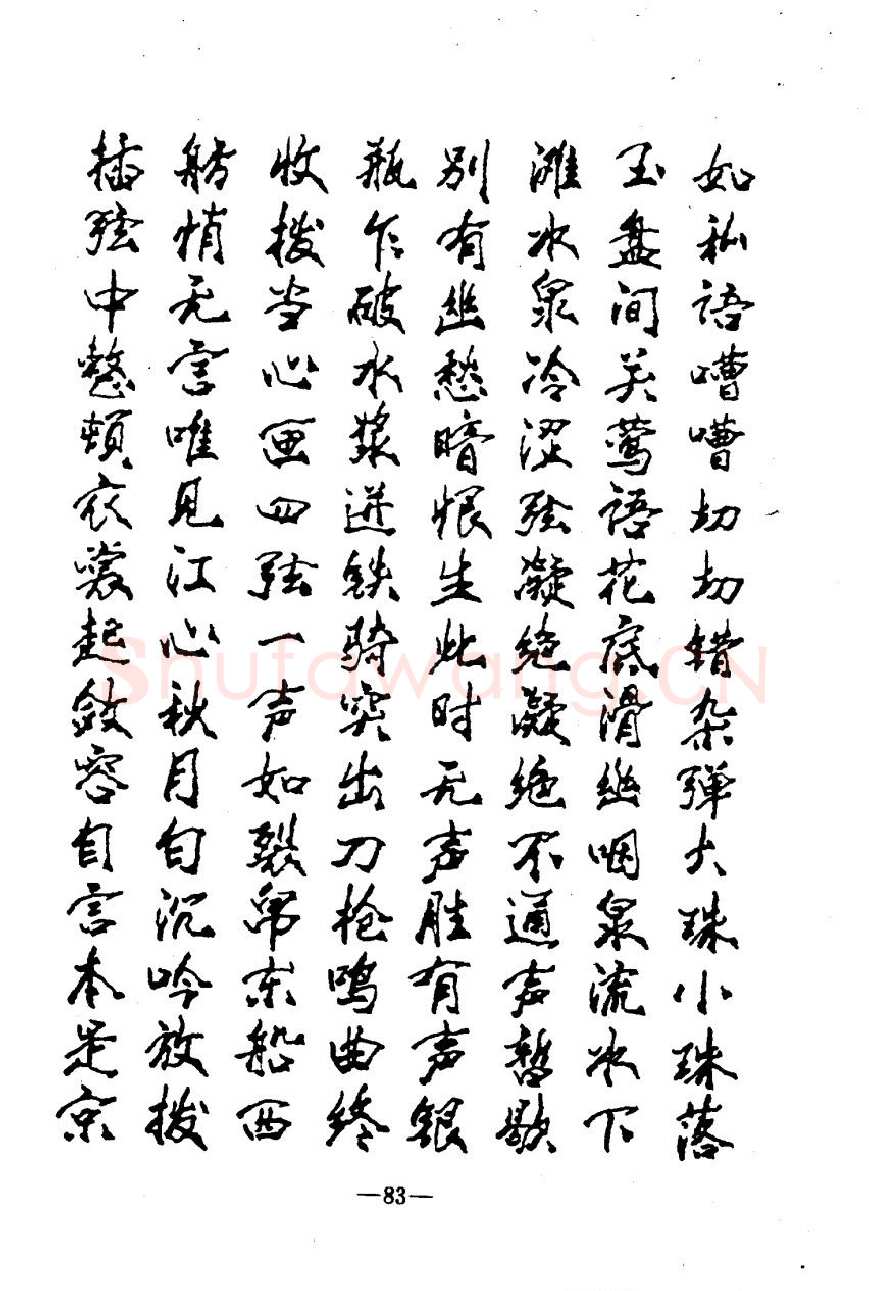 如私语嘈嘈切切错杂弹大珠小珠落
玉盘间关莺语花底滑幽咽泉流冰下
滩水泉冷涩弦凝绝凝绝不通声暂歇
别有幽愁暗恨生此时无声胜有声银
瓶乍破水浆迸铁骑突出刀枪鸣曲终
收拨当心画四弦一声如裂帛东船西
舫悄无言唯见江心秋月白沉吟放拨
插弦中整顿衣裳起敛容自言本是京
—83—
Shufawang.CN